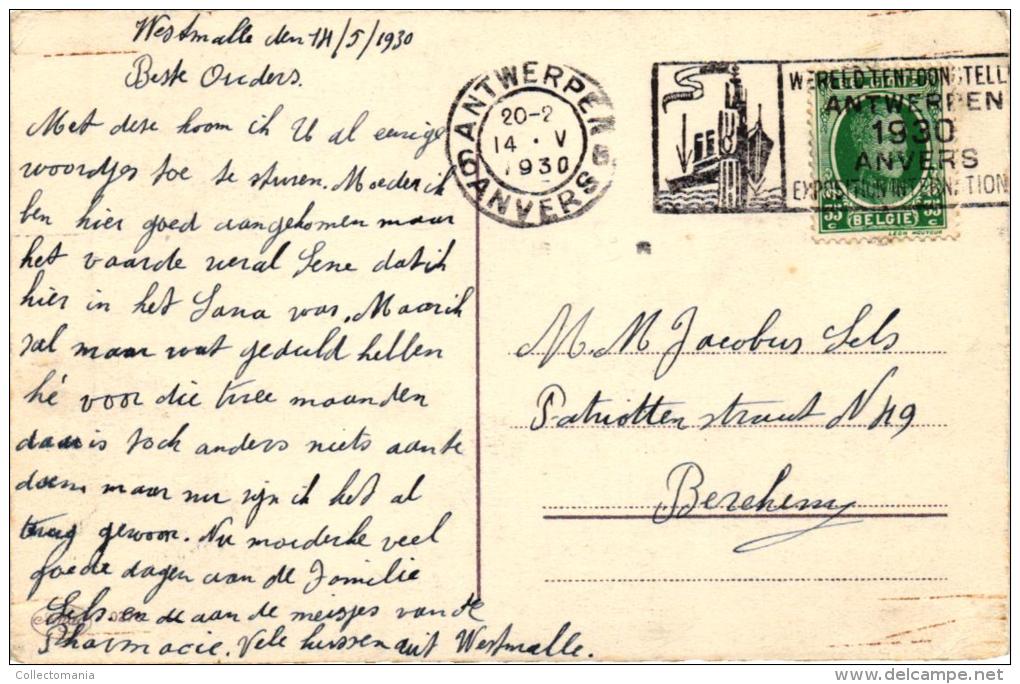 Westmalle den 14/5/1930
Beste Ouders.
Met dese koom ik U al eenige
woordjes toe te sturen. Moeder ik
ben hier goed aangekomen maar
het vaarde veral Sene dat ik
hier in het Sana was. Maar ik
sal maar wat geduld hellen
hé voor die twee maanden
daar is toch anders niets aan te
doen, maar nu zijn ik het al
trug gewoon. Nu moederke veel
goede dagen aan de Familie
Sels. en de aan de meisjes van de
Pharmacie. Vele kussen uit Westmalle.
ANTWERPEN 6
20-2
14 · V
1930
6 ANVERS
WERELDTENTOONSTELL
ANTWERPEN
1930
ANVERS
EXPOSITION INTERNATION
35 c BELGIE 35 c
M. M Jacobus Sels
Patriotten straat N 49
Berchem
Collectomania
delcampe.net